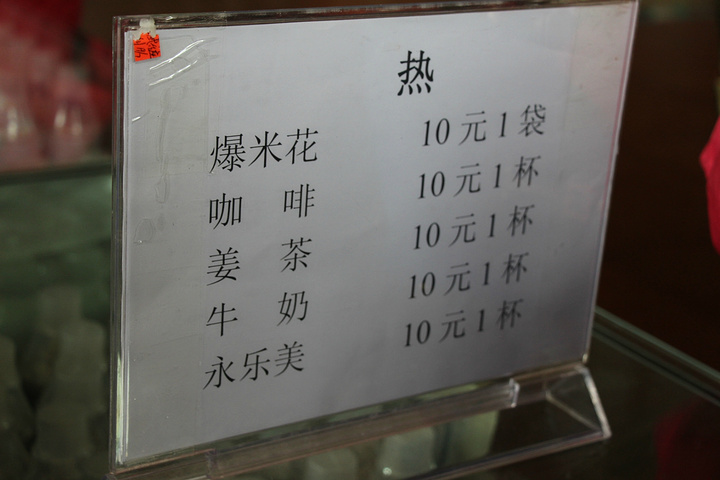 热
爆米花 10元1袋
咖啡 10元1杯
姜茶 10元1杯
牛奶 10元1杯
永乐美 10元1杯